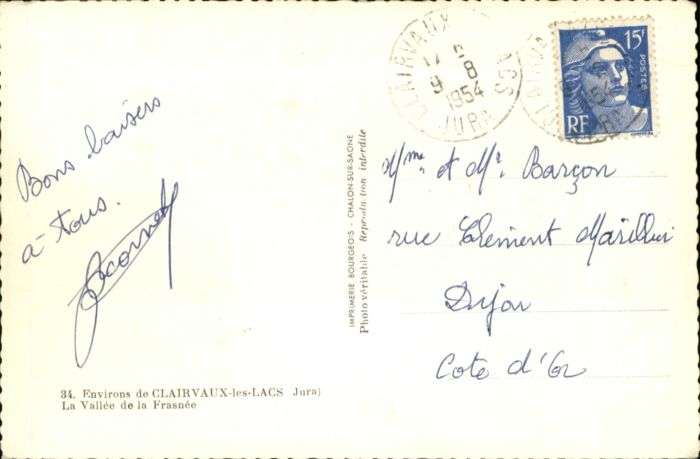 Bons baisers
à tous.
34. Environs de CLAIRVAUX-les-LACS Jura)
La Vallée de la Frasnée
IMPRIMERIE BOURGEOIS - CHALON-SUR-SAONE
Photo véritable Reproduction interdite
CLAIRVAUX
9 8
1954
JURA
15F
POSTES
RF
Mme et Mr. Barçon
rue Clément
Dijon
Cote d'Or